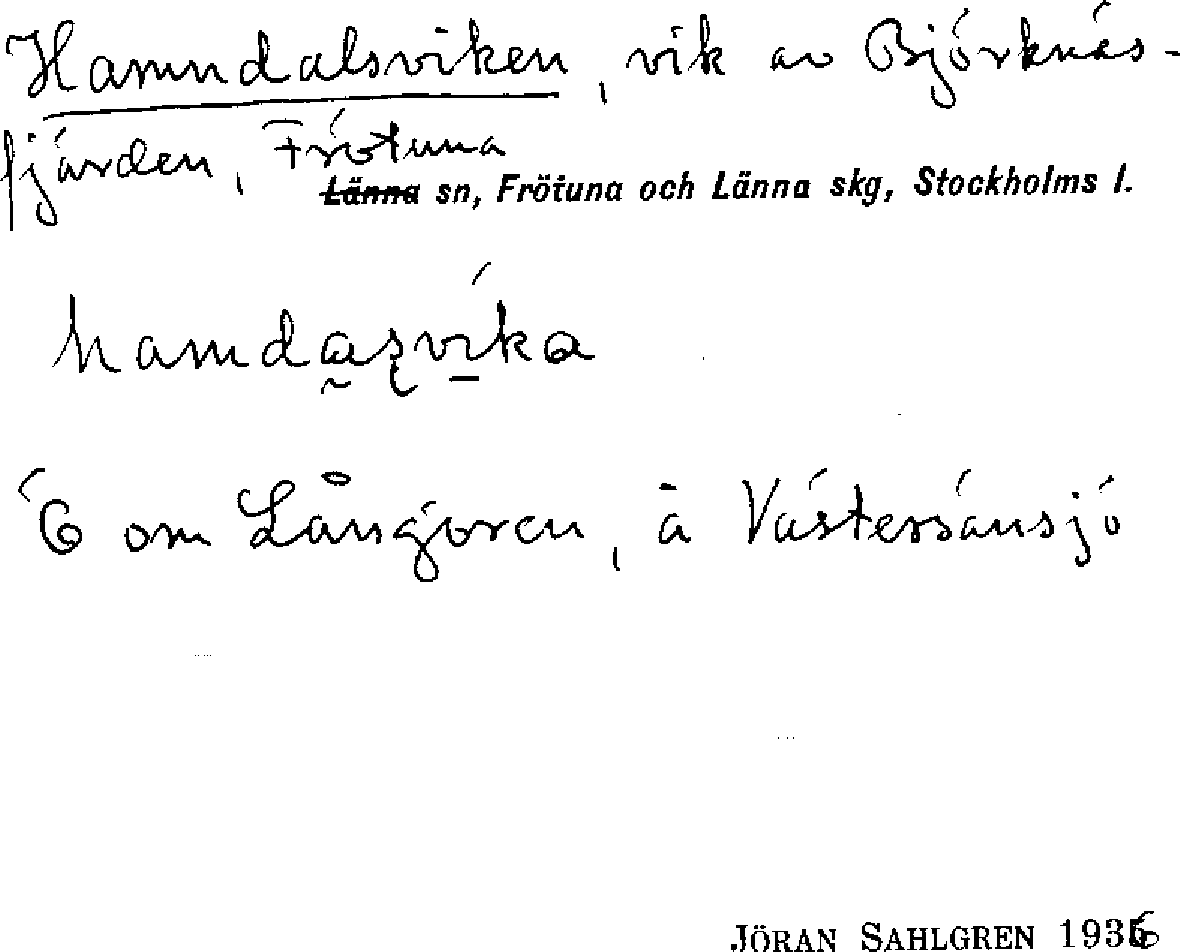 Hamndalsviken, vik av Björknäs-
fjärden, Frötuna
Länna sn, Frötuna och Länna skg, Stockholms l.
hamdaʂvika
Ö om Långören, å Västersånsjö
JÖRAN SAHLGREN 1936